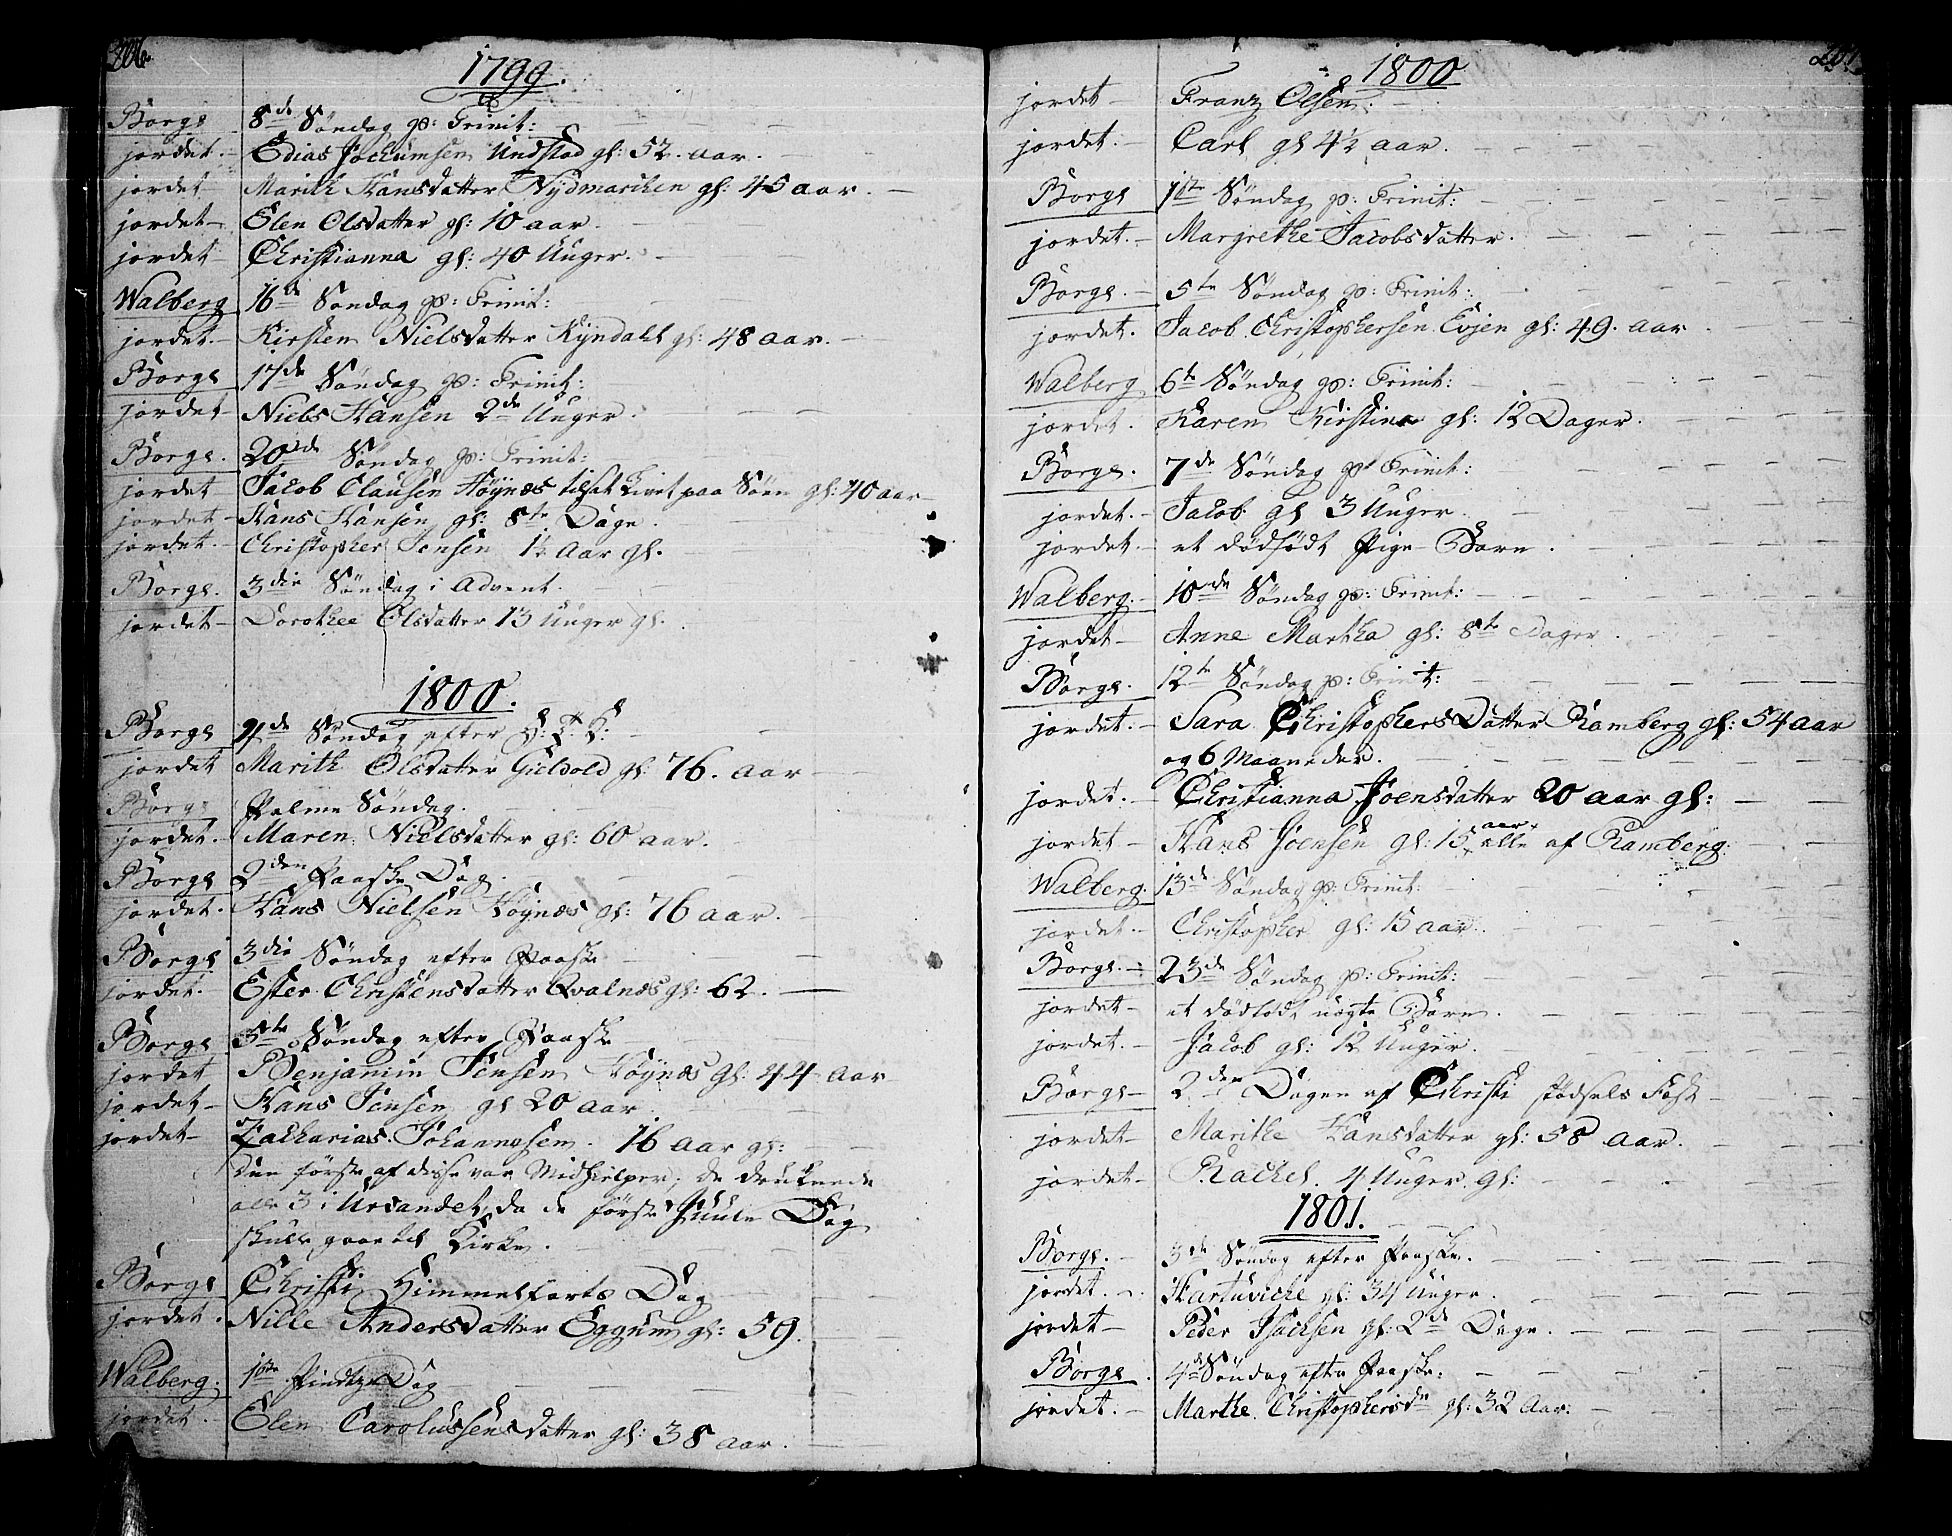 206.
1799.
Borge 8de Søndag p: Trinit:
jordet. Edias Jochumsen Undstad gl: 52. aar.
jordet Marith Hansdatter Nÿdmarchen gl: 45 aar.
jordet Elen Olsdatter gl: 10 aar.
jordet Christianna gl: 40 Uuger.
Walberg 16de Søndag p: Trinit:
jordet. Kirsten Nielsdatter Kÿndahl gl: 48 aar.
Borge 17de Søndag p: Trinit:
jordet Niels Hansen 2de Uuger.
Borge. 20de Søndag p: Trinit:
jordet Jacob Clausen Høÿnæs tilsat Livet paa Søen gl: 40 aar
jordet Hans Hansen gl: 8te Dage.
jordet. Christopher Jensen 1½ Aar gl.
Borge. 3die Søndag i Advent.
jordet Dorothea Olsdatter 13 Uuger gl.
1800.
Borge 4de Søndag efter H: 3 K:
jordet Marith Olsdatter Gieldold gl: 76. aar
Borge Palme Søndag.
jordet. Maren Nielsdatter gl: 60 aar.
Borge 2den Paaske Dag.
jordet. Hans Nielsen Høÿnæs gl: 76 aar.
Borge 3die Søndag efter Paaske
jordet. Ester Christensdatter Qvalnæs gl: 62.
Borge 5te Søndag efter Paaske
jordet Benjamin Jensen Høÿnæs gl: 44 aar
jordet Hans Jensen gl 20 aar
jordet Zacharias Johannesen. 16 aar gl:
Den første af disse var Medhielper; de druknede
alle 3 i Uresandet, da de første Juule Dag
skulle gaae til Kirke.
Borge Christi Himmelfarts Dag
jordet. Nille Andersdatter Eggum gl: 59.
Walberg. 1ste Pindtze Dag
jordet. Elen Carolussensdatter gl: 38 aar.
207.
1800
jordet Franz Olsen.
jordet. Carl gl 4½ aar.
Borge 1ste Søndag p: Trinit:
jordet. Margrethe Jacobsdatter.
Borge. 5te Søndag p: Trinit:
jordet. Jacob Christophersen Evjen gl: 49. aar
Walberg 6te Søndag p: Trinit:
jordet. Karen Kirstina gl: 12 Dager.
Borge. 7de Søndag p: Trinit:
jordet. Jacob gl 3 Uuger.
jordet. et dødfødt Pige-Barn.
Walberg. 10de Søndag p: Trinit:
jordet Anne Martha gl: 8te Dager.
Borge. 12te Søndag p: Trinit:
jordet. Sara ChristophersDatter Ramberg gl: 54 aar
og 6 Maaneder.
jordet. Christianna Joensdatter 20 aar gl:
jordet Hans Joensen gl: 15 aar alle af Ramberg.
Walberg. 13de Søndag p: Trinit:
jordet. Christopher gl: 15 aar.
Borge. 23de Søndag p: Trinit:
jordet et dødfødt uægte Barn.
jordet. Jacob gl: 12 Uuger.
Borge 2den Dagen af Christi Fødsels Fest
jordet Marithe Hansdatter gl: 58 aar.
jordet Rachel. 4 Uuger gl:
1801.
Borge. 3de Søndag efter Paaske.
jordet. Hartuviche gl: 34 Uuger.
jordet Peder Isachsen gl: 2de Dage.
Borge 4de Søndag efter Paaske:
jordet. Marthe Christophersdr gl: 32 Aar: